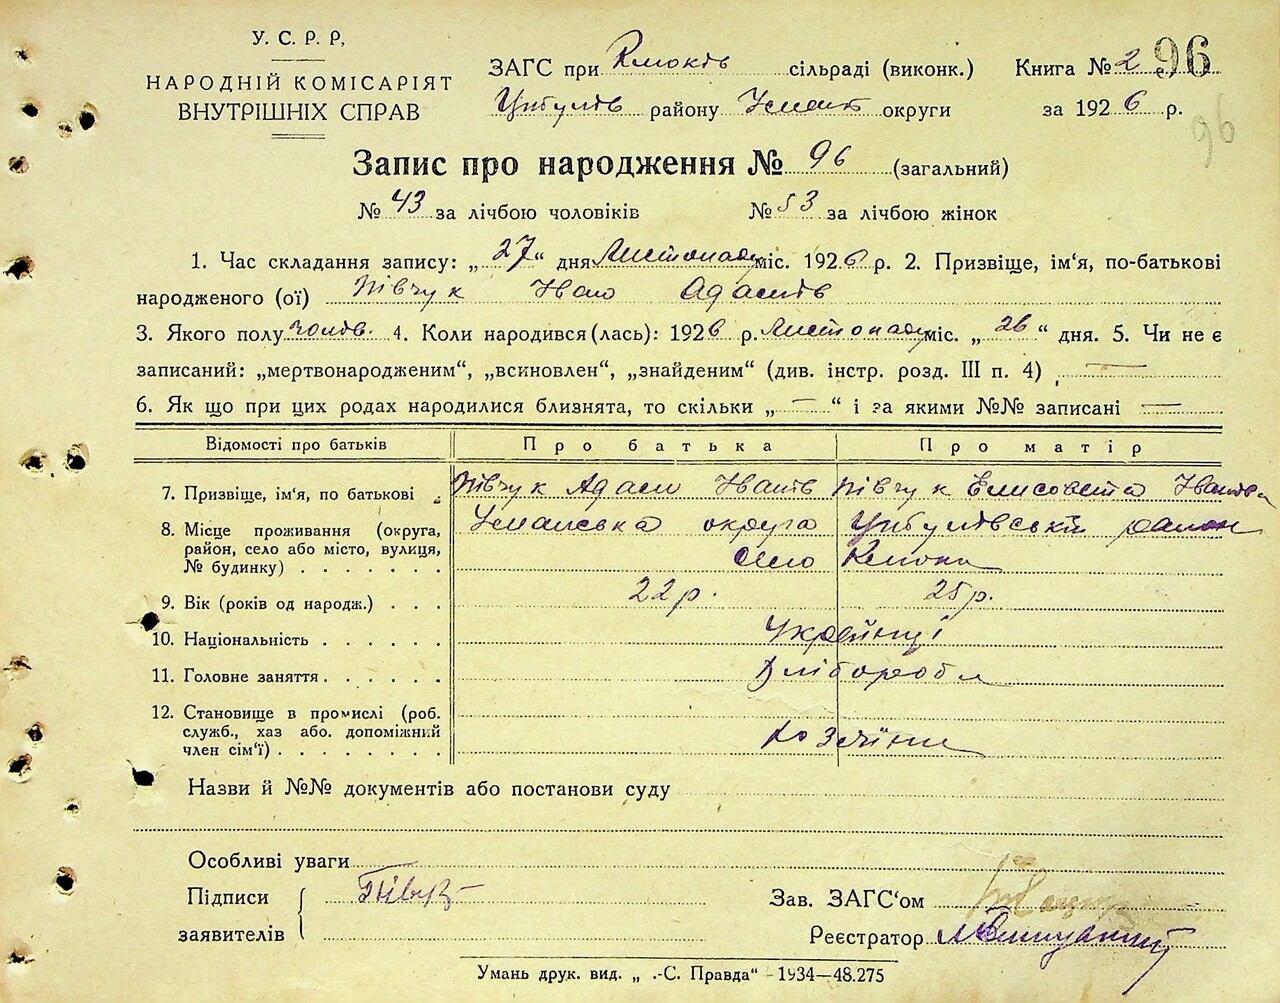 У. С. Р. Р.
НАРОДНІЙ КОМІСАРІЯТ
ВНУТРІШНІХ СПРАВ
ЗАГС при сільраді (виконк.) Книга № 2 96
Цибулів району Уманс округи за 1926 р.
96
Запис про народження № 96 (загальний)
№ 43 за лічбою чоловіків № 53 за лічбою жінок
1. Час складання запису: „27“ дня Листопаду міс. 1926 р. 2. Призвіще, ім'я, по-батькові
народженого (ої) Півчук Іван Адамів
3. Якого полу чолів. 4. Коли народився (лась): 1926 р. Листопаду міс. „26“ дня. 5. Чи не є
записаний: „мертвонародженим“, „всиновлен“, „знайденим“ (див. інстр. розд. III п. 4) —
6. Як що при цих родах народилися близнята, то скільки „—“ і за якими №№ записані —
Відомості про батьків Про батька Про матір
7. Призвіще, ім'я, по батькові Півчук Адам Іванів Півчук Елисовета Іванівна
8. Місце проживання (округа, район, село або місто, вулиця, № будинку) Уманська округа Цибулівський район
село
9. Вік (років од народж.) 22 р. 25 р.
10. Національність Українці
11. Головне заняття Хлібороби
12. Становище в промислі (роб. служб., хаз або. допоміжний член сім'ї) Хозяїни
Назви й №№ документів або постанови суду
Особливі уваги
Підписи заявителів Півчук
Зав. ЗАГС'ом
Реєстратор
Умань друк. вид. „ .-С. Правда“ - 1934—48.275